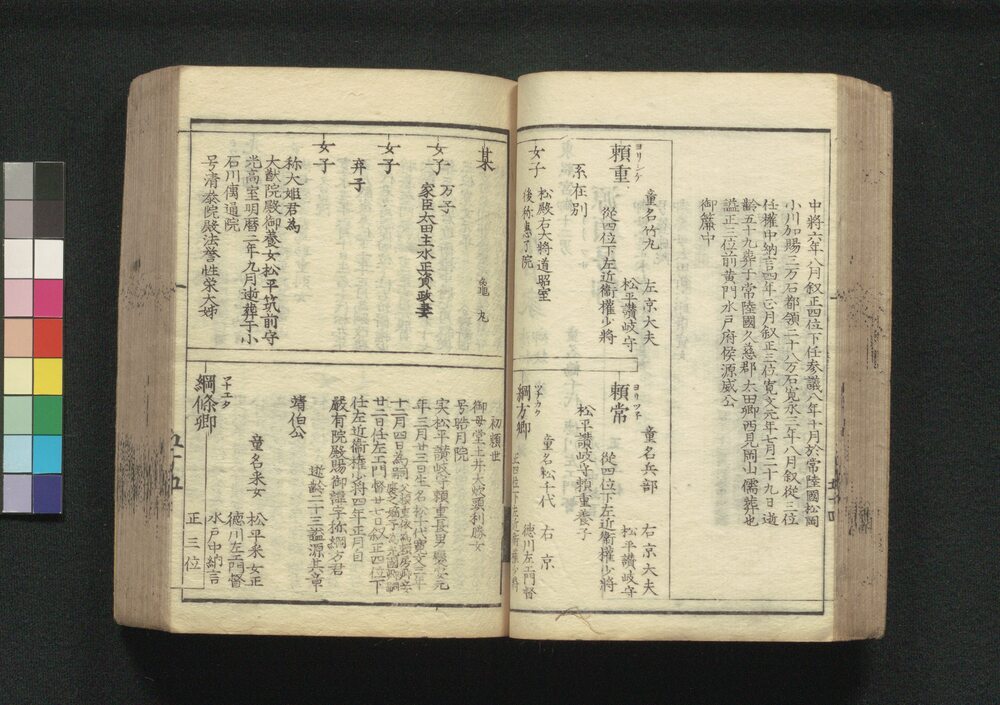 中將六年八月叙正四位下任参議八年十月於常陸國松岡
小川加賜三万石都領二十八万石寛永三年八月叙從三位
任權中納言四年正月叙正三位寛文元年七月二十九日逝
齢五十九葬于常陸國久慈郡太田郷西見岡山儒葬也
謚正三位前黄門水戸府侯源威公
御簾中
童名竹丸
左京大夫
松平讃岐守
ヨリシゲ
頼重
從四位下左近衛權少將
系在別
女子
松殿右大將道昭室
後称
了院
童名兵部
右京大夫
松平讃岐守
ヨリツネ
頼常
從四位下左近衛權少將
松平讃岐守頼重養子
童名松千代
右京
德川左衛門督
ツナカタ
綱方卿
正四位下左近衛權少將
某
龜丸
女子
万子
家臣太田主水正資政妻
女子
弃子
女子
称大姫君為
大猷院殿御養女松平筑前守
光高室明暦二年九月逝葬于小
石川傳通院
号清泰院殿法誉性栄大姉
初頼世
御母堂土井大炊頭利勝女
号皓月院
実松平讃岐守頼重長男慶安元
年三月廿三日生名松千代寛文三年
十二月四日為
廿二日任左衛門督廿七日叙正四位下
任左近衛權少將四年正月自
嚴有院殿賜御諱字称綱方君
逝齢二十三謚源其章
靖伯公
ツナエダ
綱條卿
童名采女
松平采女正
德川左衛門督
水戸中納言
正三位
五十五